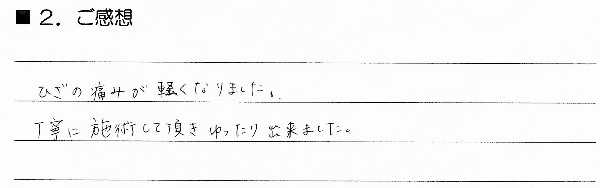 ■ 2. ご感想
ひざの痛みが軽くなりました。
丁寧に施術して頂きゆったり出来ました。